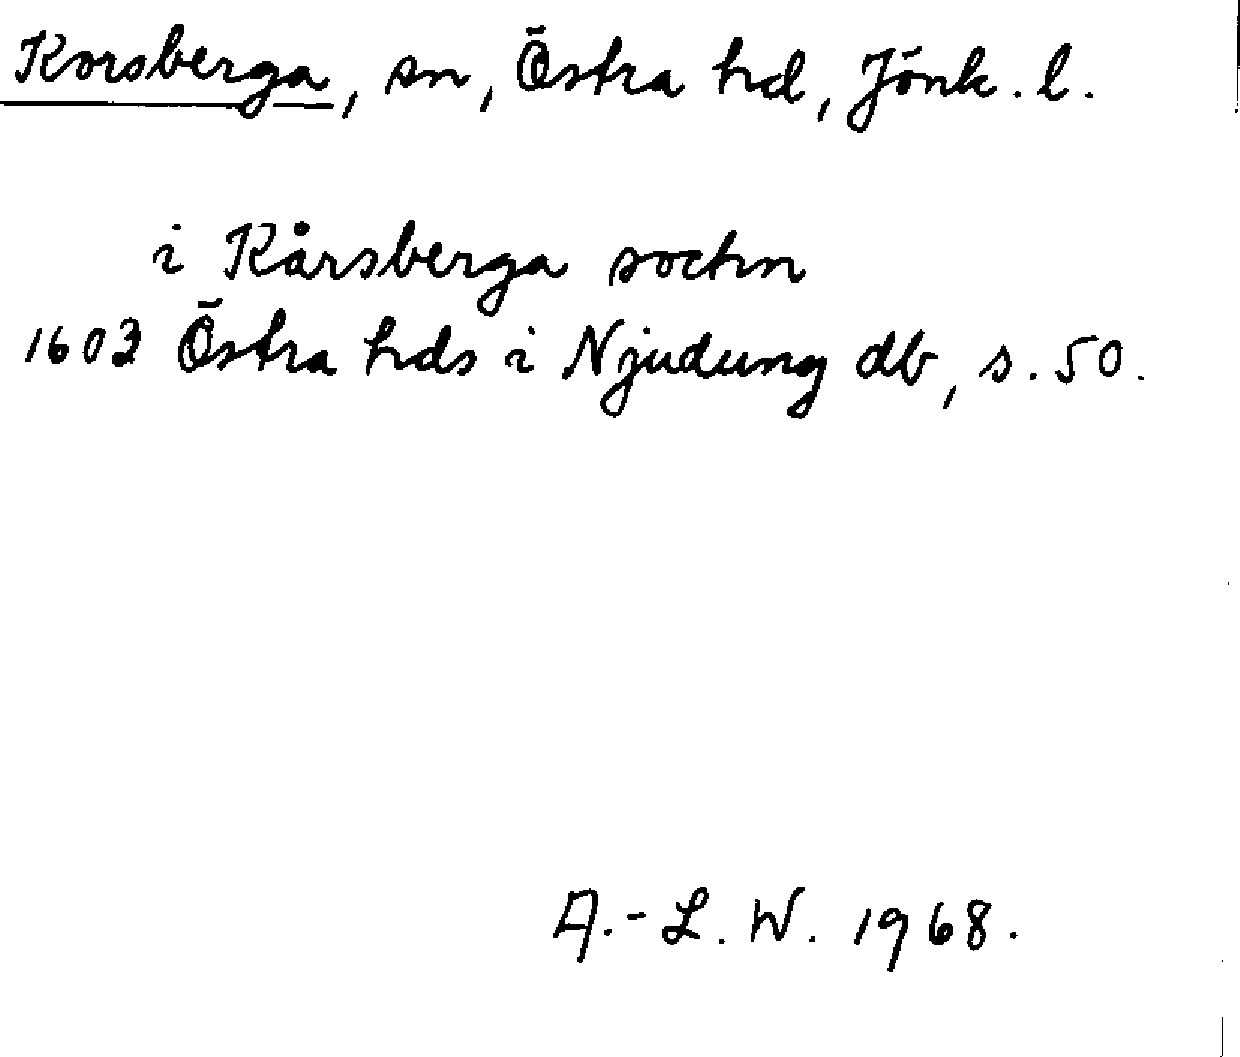 Korsberga, sn, Östra hd, Jönk. l.
i Kårsberga sochn
1603 Östra hds i Njudung db, s. 50.
A.-L. W. 1968.